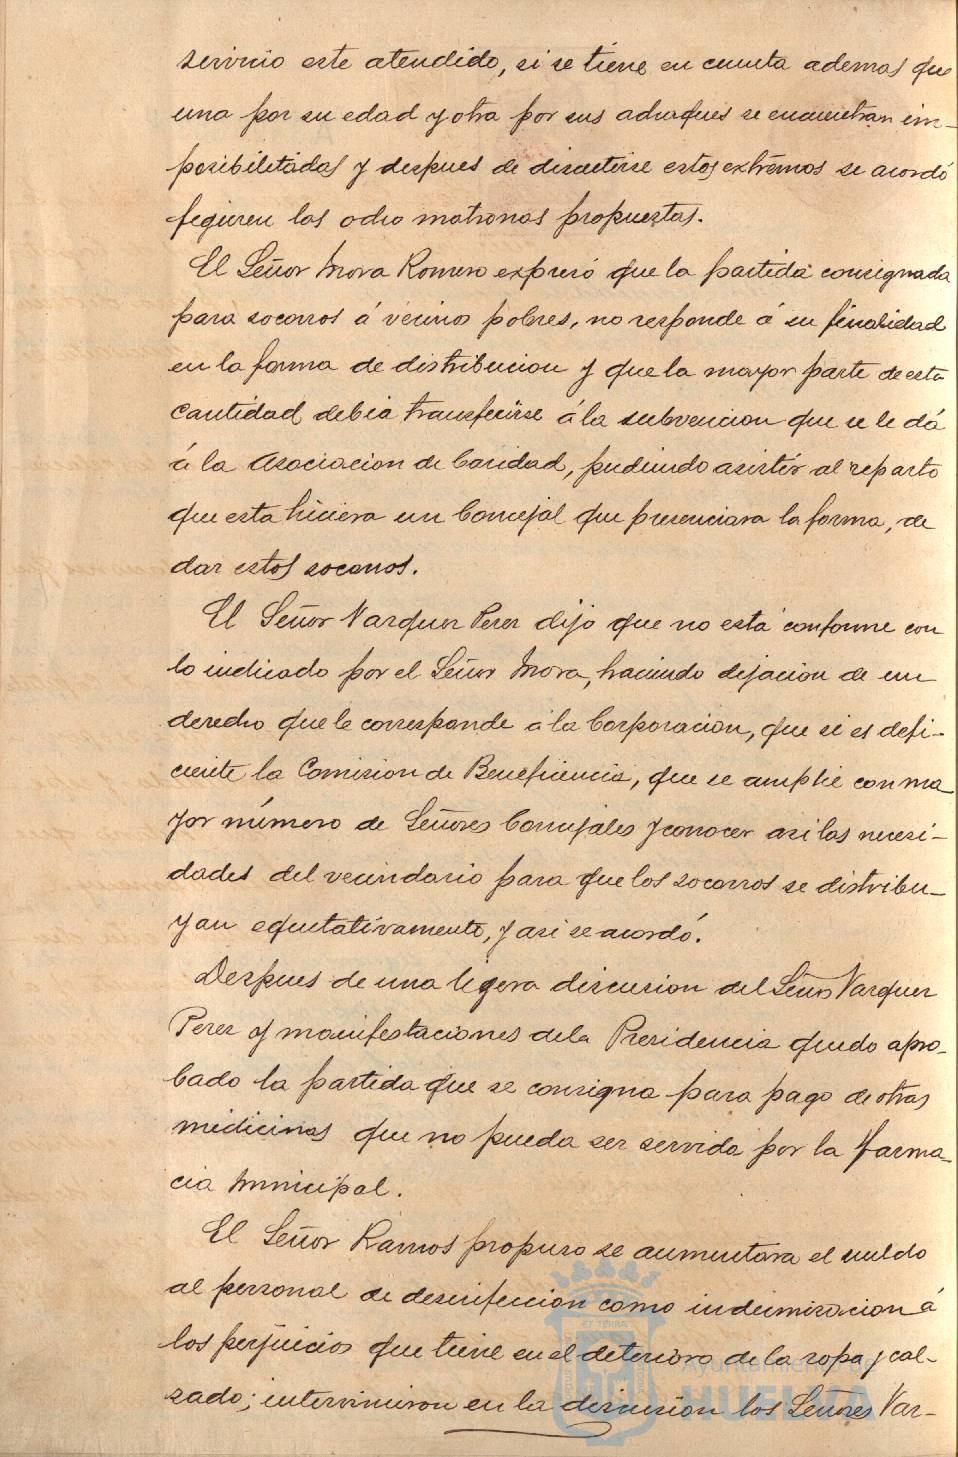 servicio este atendido, si se tiene en cuenta ademas que
una por su edad y otra por sus achaques se encuentran im-
posibilitadas y despues de discutirse estos extremos se acordó
figuren las ocho matronas propuestas.
El Señor Mora Romero expresó que la partida consignada
para socorros á vecinos pobres, no responde á su finalidad
en la forma de distribucion y que la mayor parte de esta
cantidad debia transferirse á la subvencion que se le dá
á la Asociacion de Caridad, pudiendo asistir al reparto
que esta hiciera un Concejal que presenciara la forma, de
dar estos socorros.
El Señor Vazquez Perez dijo que no está conforme con
lo indicado por el Señor Mora, haciendo dejacion de un
derecho que le corresponde á la Corporacion, que si es defi-
ciente la Comision de Beneficencia, que se amplie con ma
yor número de Señores Concejales y conocer asi las necesi-
dades del vecindario para que los socorros se distribu-
yan equitativamente, y asi se acordó.
Despues de una ligera discusion del Señor Vazquez
Perez y manifestaciones de la Presidencia quedo apro-
bado la partida que se consigna para pago de otras
medicinas que no pueda ser servida por la farma-
cia Municipal.
El Señor Ramos propuso se aumentara el sueldo
al personal de desinfeccion como indemizacion á
los perjuicios que tiene en el deterioro de la ropa y cal-
zado; intervinieron en la discusion los Señores Vaz-
ET TERRA
Ayuntamiento de
HUELVA